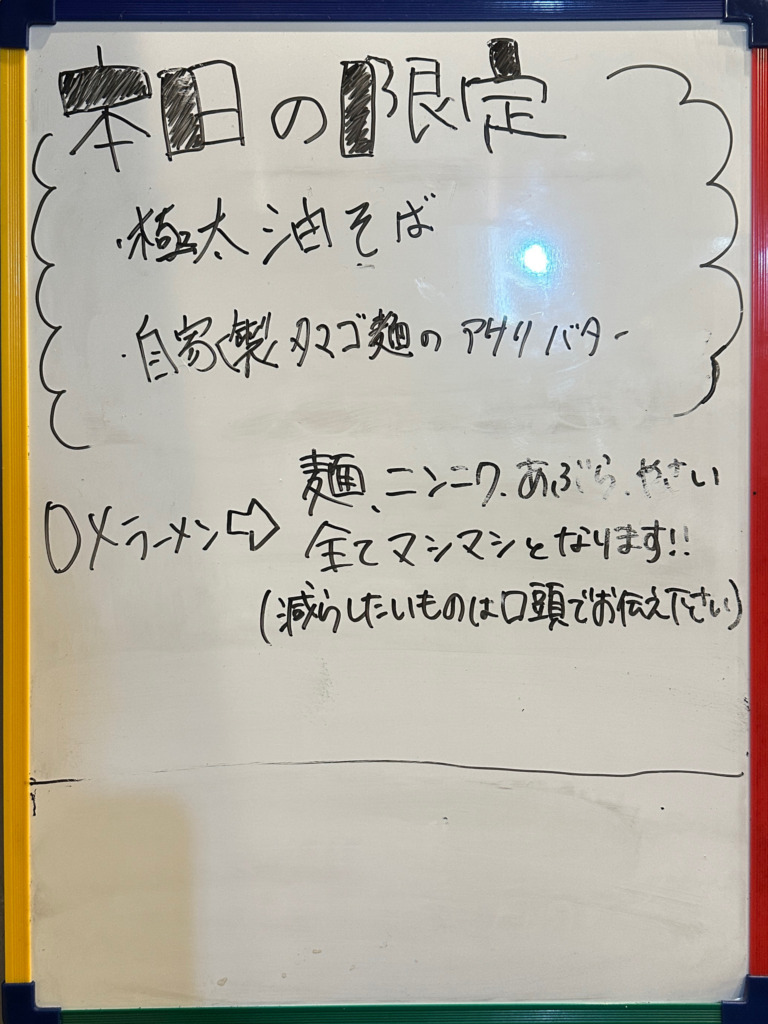 本日の限定
・極太 油そば
・自家製タマゴ麺の アサリバター
麺、ニンニク、あぶら、やさい
DXラーメン⇨ 全てマシマシとなります!!
(減らしたいものは口頭でお伝え下さい)